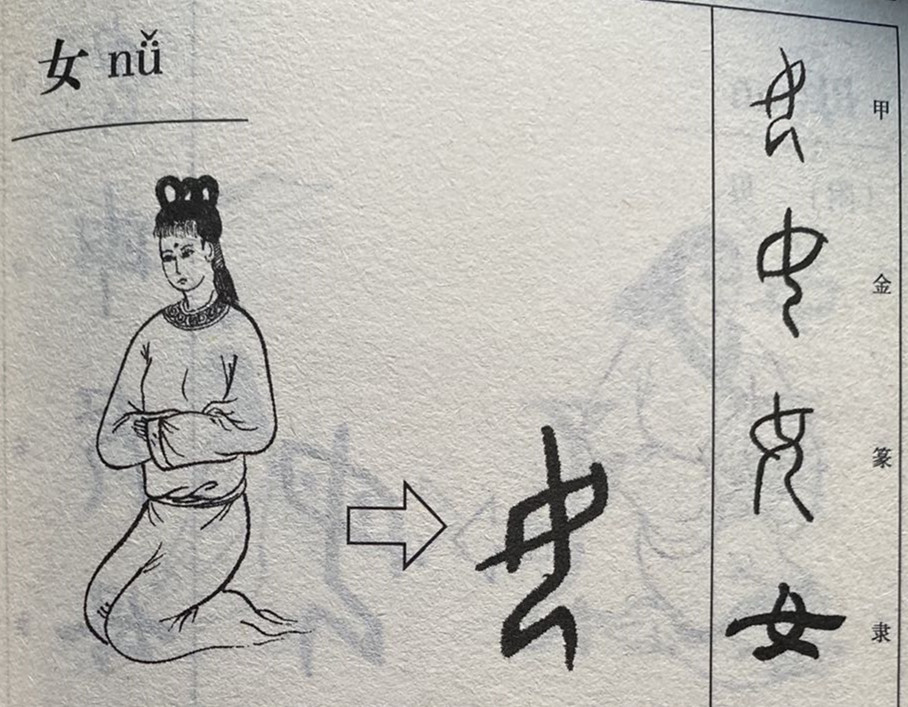 女 nǚ
甲
金
篆
隶
女